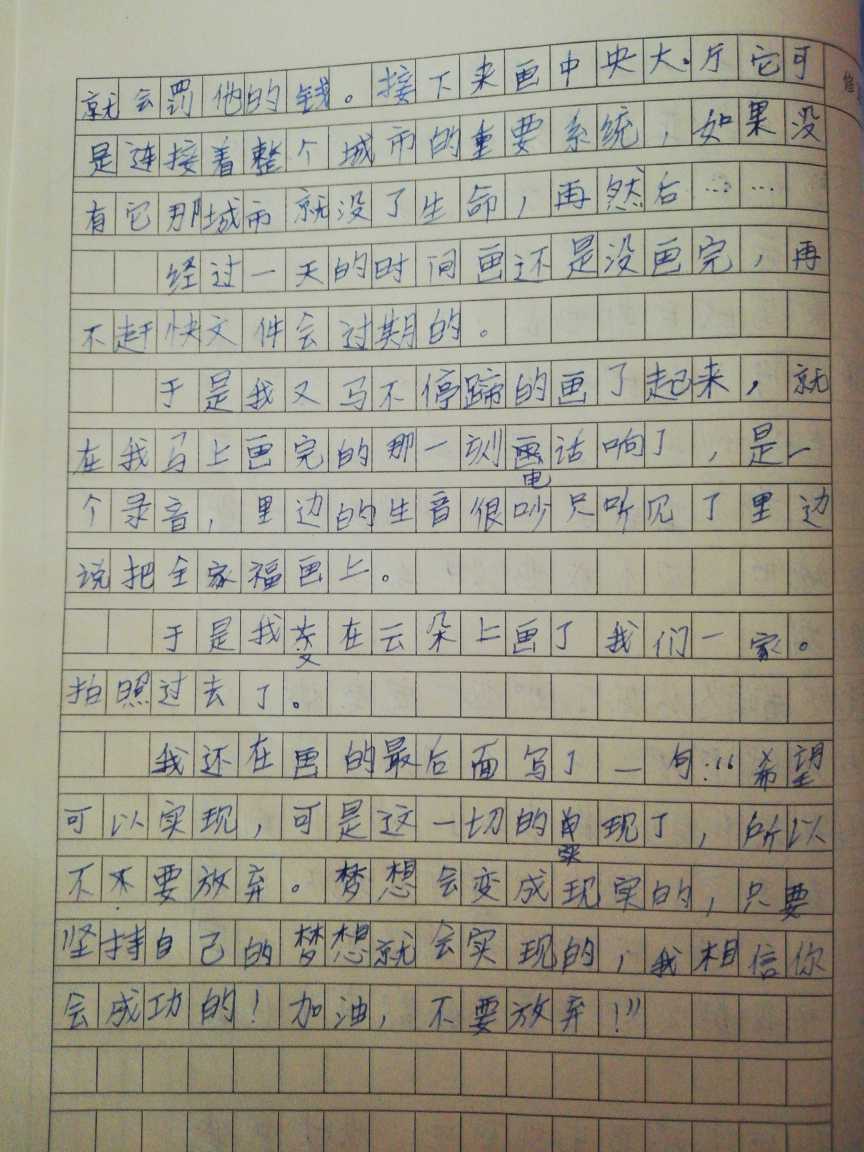 就会罚他的钱。接下来画中央大厅它可
是连接着整个城市的重要系统，如果没
有它那城市就没了生命，再然后……
经过一天的时间画还是没画完，再
不赶快文件会过期的。
于是我又马不停蹄的画了起来，就
在我马上画完的那一刻电话响了，是一
个录音，里边的生音很吵只听见了里边
说把全家福画上。
于是我在云朵上画了我们一家。
拍照过去了。
我还在画的最后面写了一句：“希望
可以实现，可是这一切的实现了，所以
不要放弃。梦想会变成现实的，只要
坚持自己的梦想就会实现的，我相信你
会成功的！加油，不要放弃！”